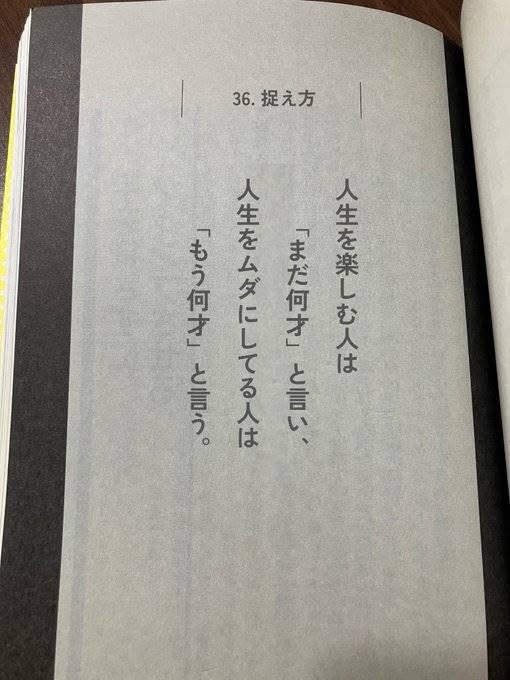 36. 捉え方
人生を楽しむ人は
「まだ何才」と言い、
人生をムダにしてる人は
「もう何才」と言う。